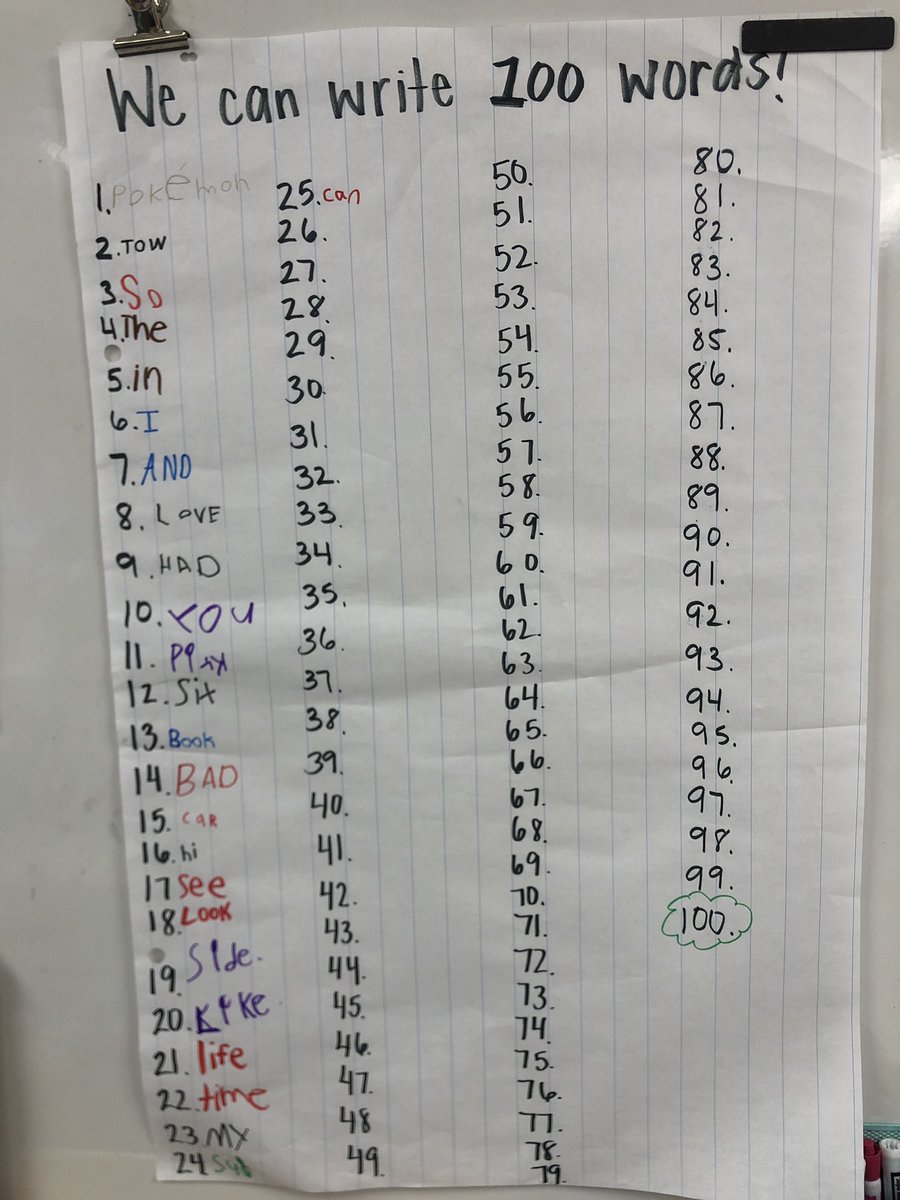 We can write 100 words!
1. Pokémon
2. TOW
3. So
4. The
5. in
6. I
7. AND
8. LOVE
9. HAD
10. YOU
11. Play
12. Sit
13. Book
14. BAD
15. CAR
16. hi
17 See
18. LOOK
19. Side.
20.
21. life
22. time
23 MY
24
25. can
26.
27.
28.
29.
30.
31.
32.
33.
34.
35.
36.
37.
38.
39.
40.
41.
42.
43.
44.
45.
46.
47.
48
49.
50.
51.
52.
53.
54.
55.
56.
57.
58.
59.
60.
61.
62.
63.
64.
65.
66.
67.
68.
69.
70.
71.
72.
73.
74.
75.
76.
77.
78.
79.
80.
81.
82.
83.
84.
85.
86.
87.
88.
89.
90.
91.
92.
93.
94.
95.
96.
97.
98.
99.
100.